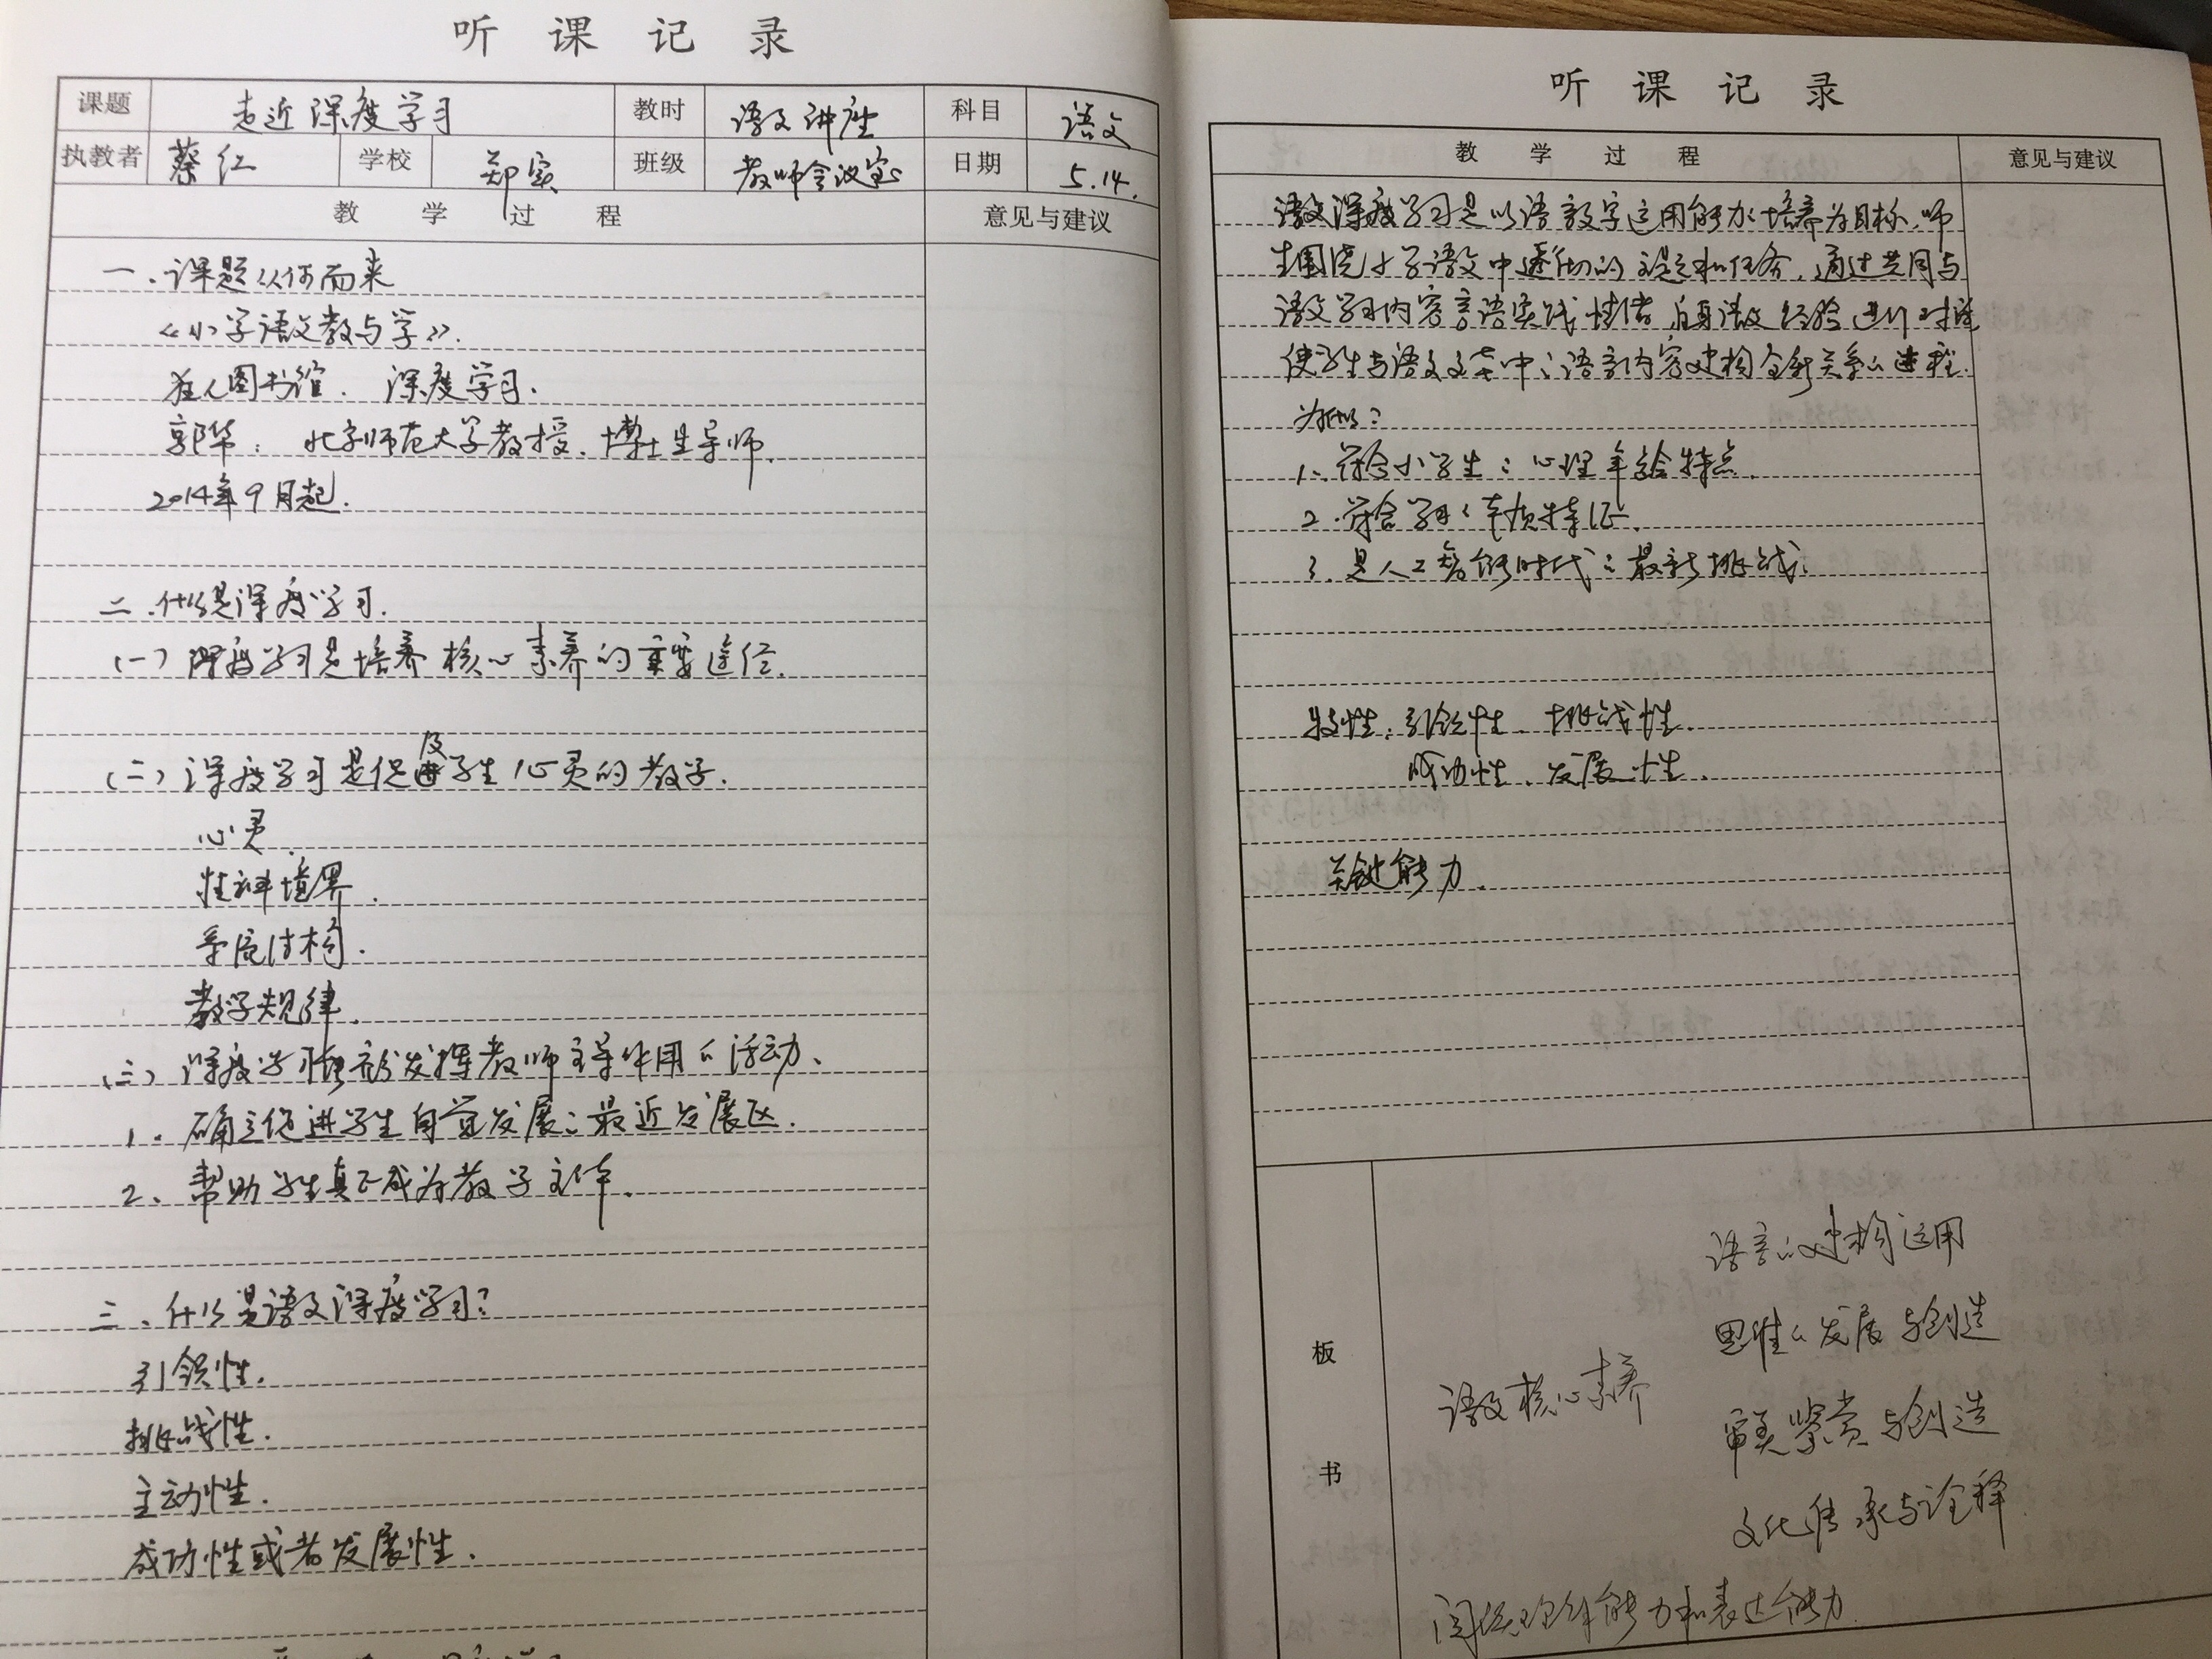 听课记录
课题 走近深度学习 教时 语文讲座 科目 语文
执教者 蔡红 学校 郑实 班级 教师会议室 日期 5.14.
教学过程 意见与建议
一、课题从何而来
《小学语文教与学》.
图书馆. 深度学习.
郭华: 北京师范大学教授、博士生导师.
2014年9月起.
二、什么是深度学习.
(一) 深度学习是培养核心素养的重要途径.
(二) 深度学习是促及学生心灵的教学.
心灵.
精神境界.
系统结构.
教学规律.
(三) 深度学习发挥教师主导作用的活动、
1. 确立促进学生自觉发展的最近发展区.
2、帮助学生真正成为教学主体.
三、什么是语文深度学习?
引领性.
挑战性.
主动性.
成功性或者发展性.
听课记录
教学过程 意见与建议
语文深度学习是以语言文字运用能力的培养为目标、师
生围绕小学语文中的主题和任务, 通过共同与
语文学习内容言语实践 自身语文经验进行对话
使学生与语文文本中的语言内容建构全新关系的进程.
为何?
1. 符合小学生的心理年龄特点.
2. 符合学习的本质特征.
3. 是人工智能时代的最新挑战.
特性: 引领性、挑战性.
成功性、发展性.
关键能力.
板书
语言的建构运用
思维的发展与创造
语文核心素养
审美鉴赏与创造
文化传承与诠释
阅读理解能力和表达能力.